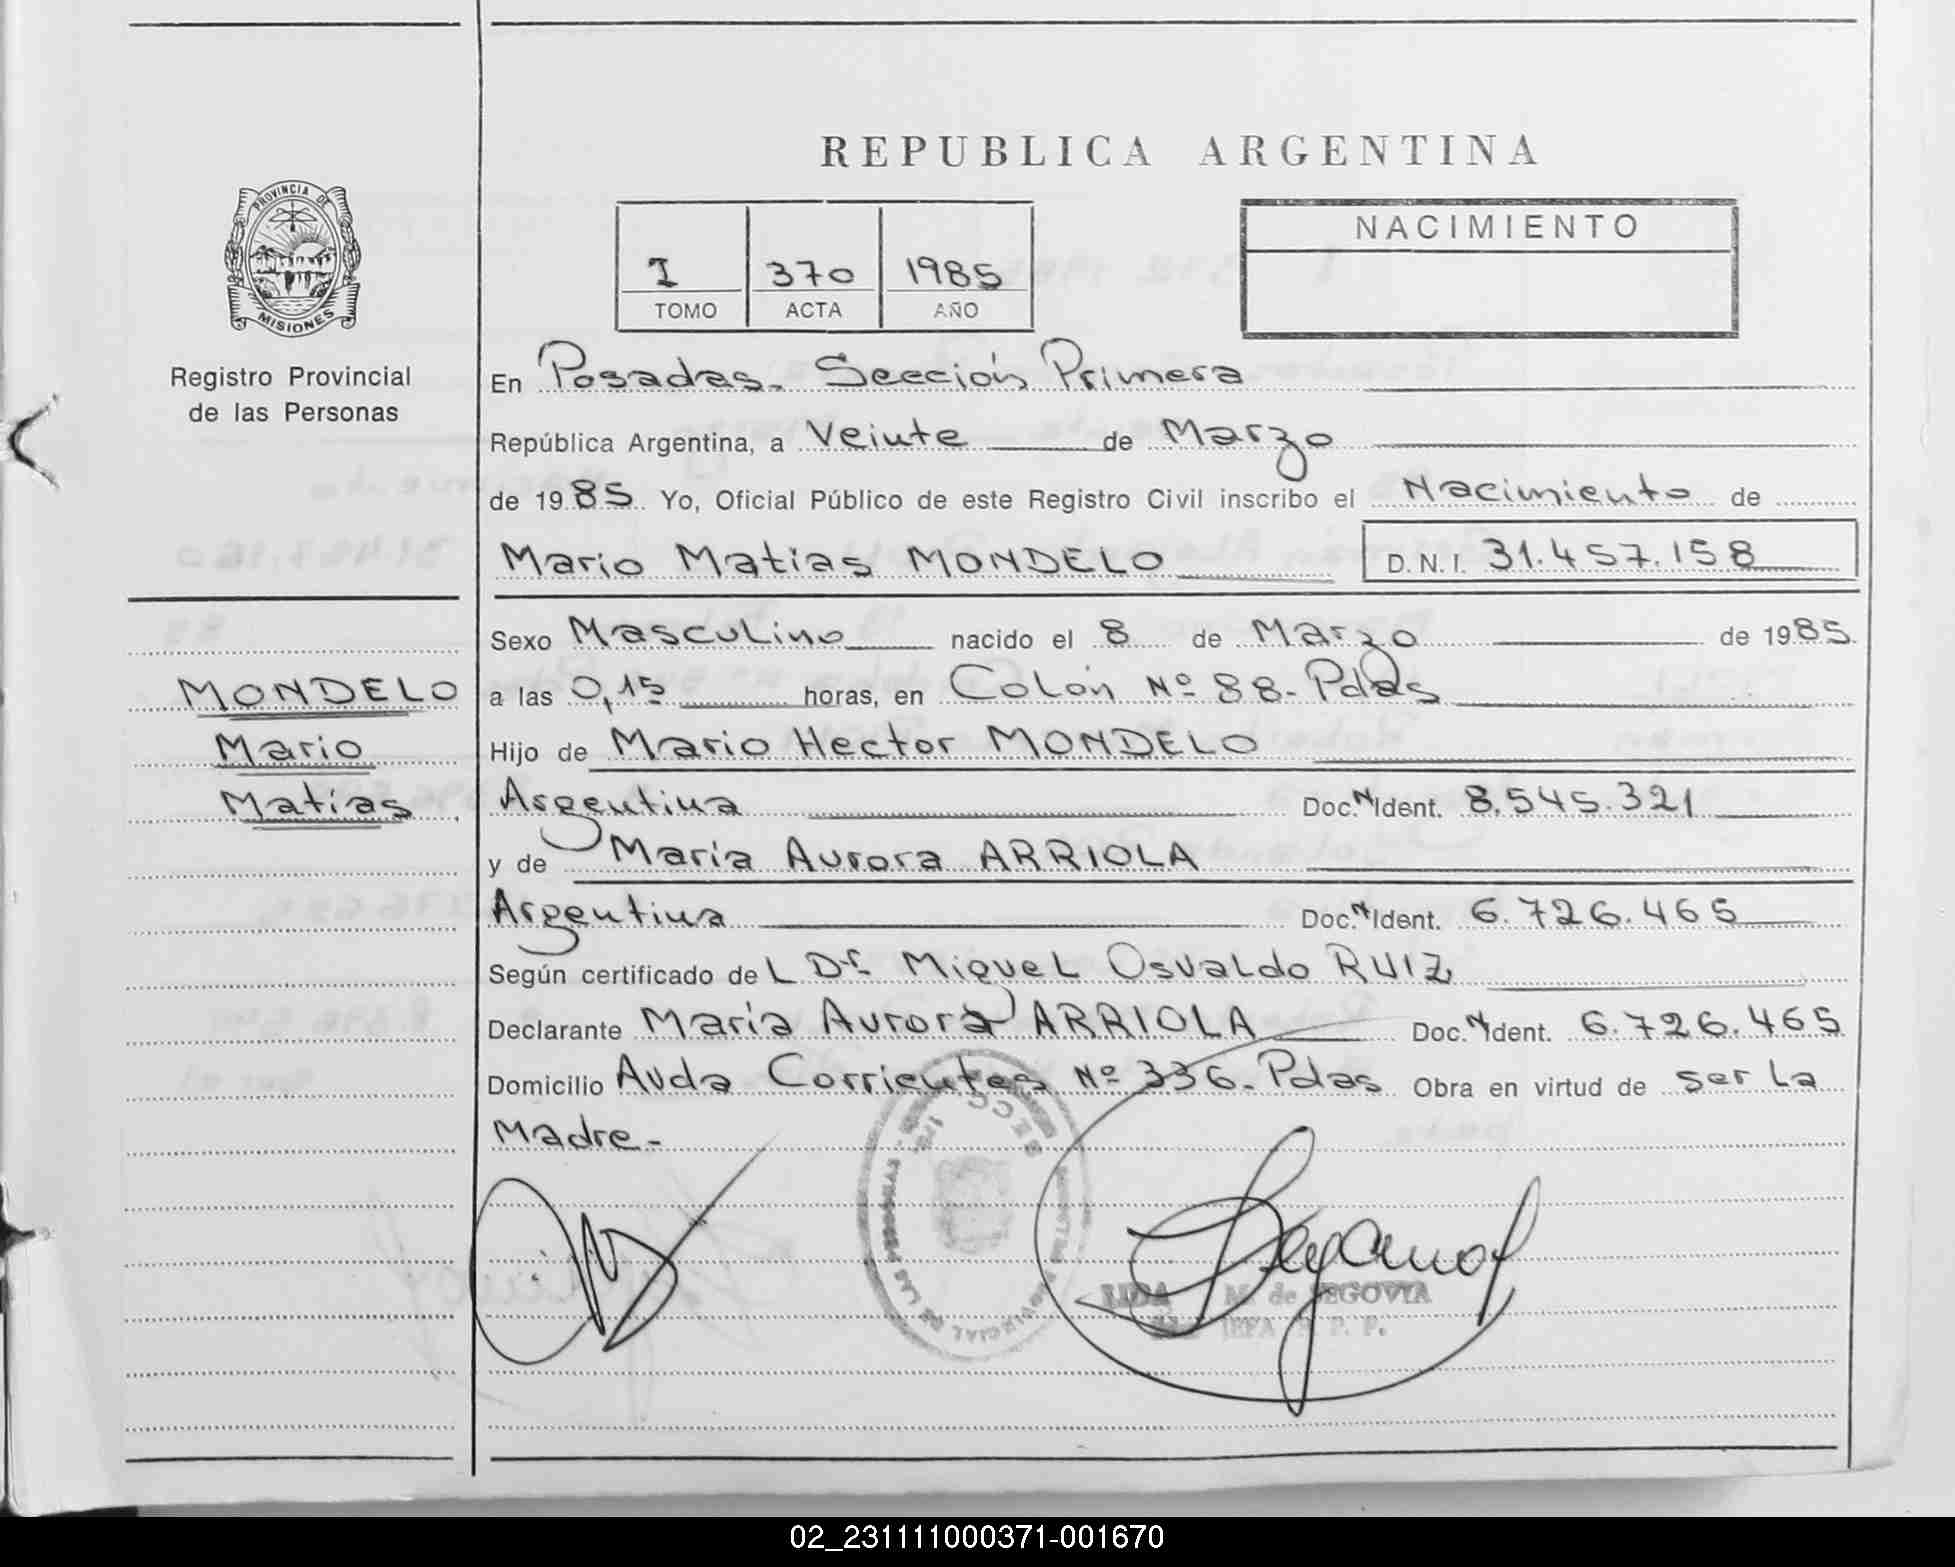 REPUBLICA ARGENTINA
PROVINCIA DE
MISIONES
Registro Provincial
de las Personas
I 370 1985
TOMO ACTA AÑO
NACIMIENTO
En Posadas. Sección Primera
República Argentina, a Veinte de Marzo
de 1985 Yo, Oficial Público de este Registro Civil inscribo el Nacimiento de
Mario Matias MONDELO D.N.I. 31.457.158
Sexo Masculino nacido el 8 de Marzo de 1985.
MONDELO
Mario
Matias
a las 0,15 horas, en Colón Nº 88- Pdas
Hijo de Mario Hector MONDELO
Argentina Doc. N Ident. 8.545.321
y de Maria Aurora ARRIOLA
Argentina Doc. N Ident. 6.726.465
Según certificado de L Dr. Miguel Osvaldo RUIZ
Declarante Maria Aurora ARRIOLA Doc. N Ident. 6.726.465
Domicilio Avda Corrientes Nº 336- Pdas Obra en virtud de ser la
Madre-
SECC. 1ra.
PROVINCIAL DE LAS PERSONAS
LIDA M. de SEGOVIA
JEFA R. P. P.
02_231111000371-001670